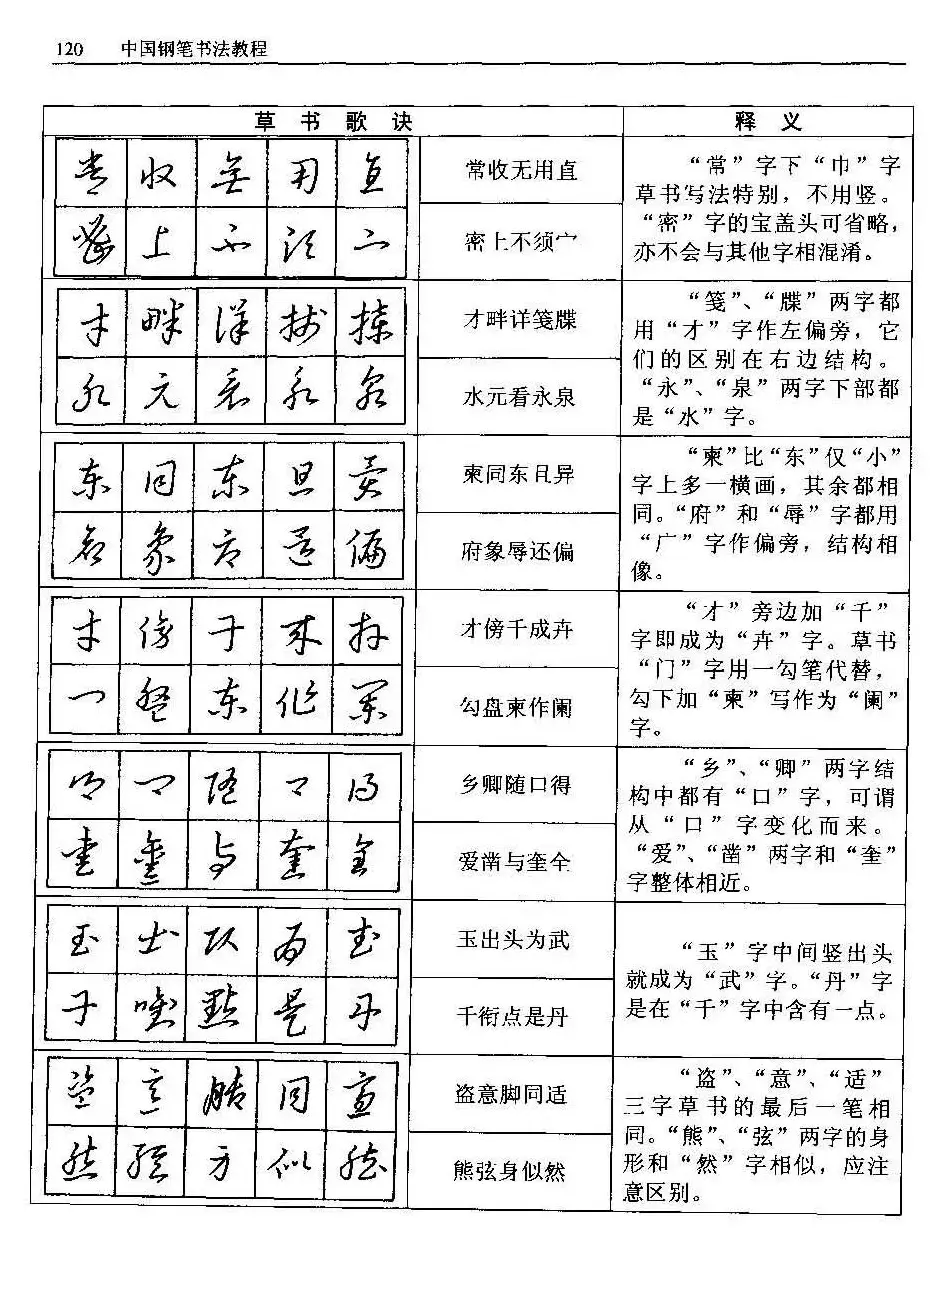 120 中国钢笔书法教程
草书歌诀
释义
常收无用直
密上不须宀
“常”字下“巾”字
草书写法特别，不用竖。
“密”字的宝盖头可省略，
亦不会与其他字相混淆。
才畔详笺牒
水元看永泉
“笺”、“牒”两字都
用“才”字作左偏旁，它
们的区别在右边结构。
“永”、“泉”两字下部都
是“水”字。
柬同东且异
府象辱还偏
“柬”比“东”仅“小”
字上多一横画，其余都相
同。“府”和“辱”字都用
“广”字作偏旁，结构相
像。
才傍千成卉
勾盘柬作阑
“才”旁边加“千”
字即成为“卉”字。草书
“门”字用一勾笔代替，
勾下加“柬”写作为“阑”
字。
乡卿随口得
爱凿与奎全
“乡”、“卿”两字结
构中都有“口”字，可谓
从“口”字变化而来。
“爱”、“凿”两字和“奎”
字整体相近。
玉出头为武
千衔点是丹
“玉”字中间竖出头
就成为“武”字。“丹”字
是在“千”字中含有一点。
盗意脚同适
熊弦身似然
“盗”、“意”、“适”
三字草书的最后一笔相
同。“熊”、“弦”两字的身
形和“然”字相似，应注
意区别。